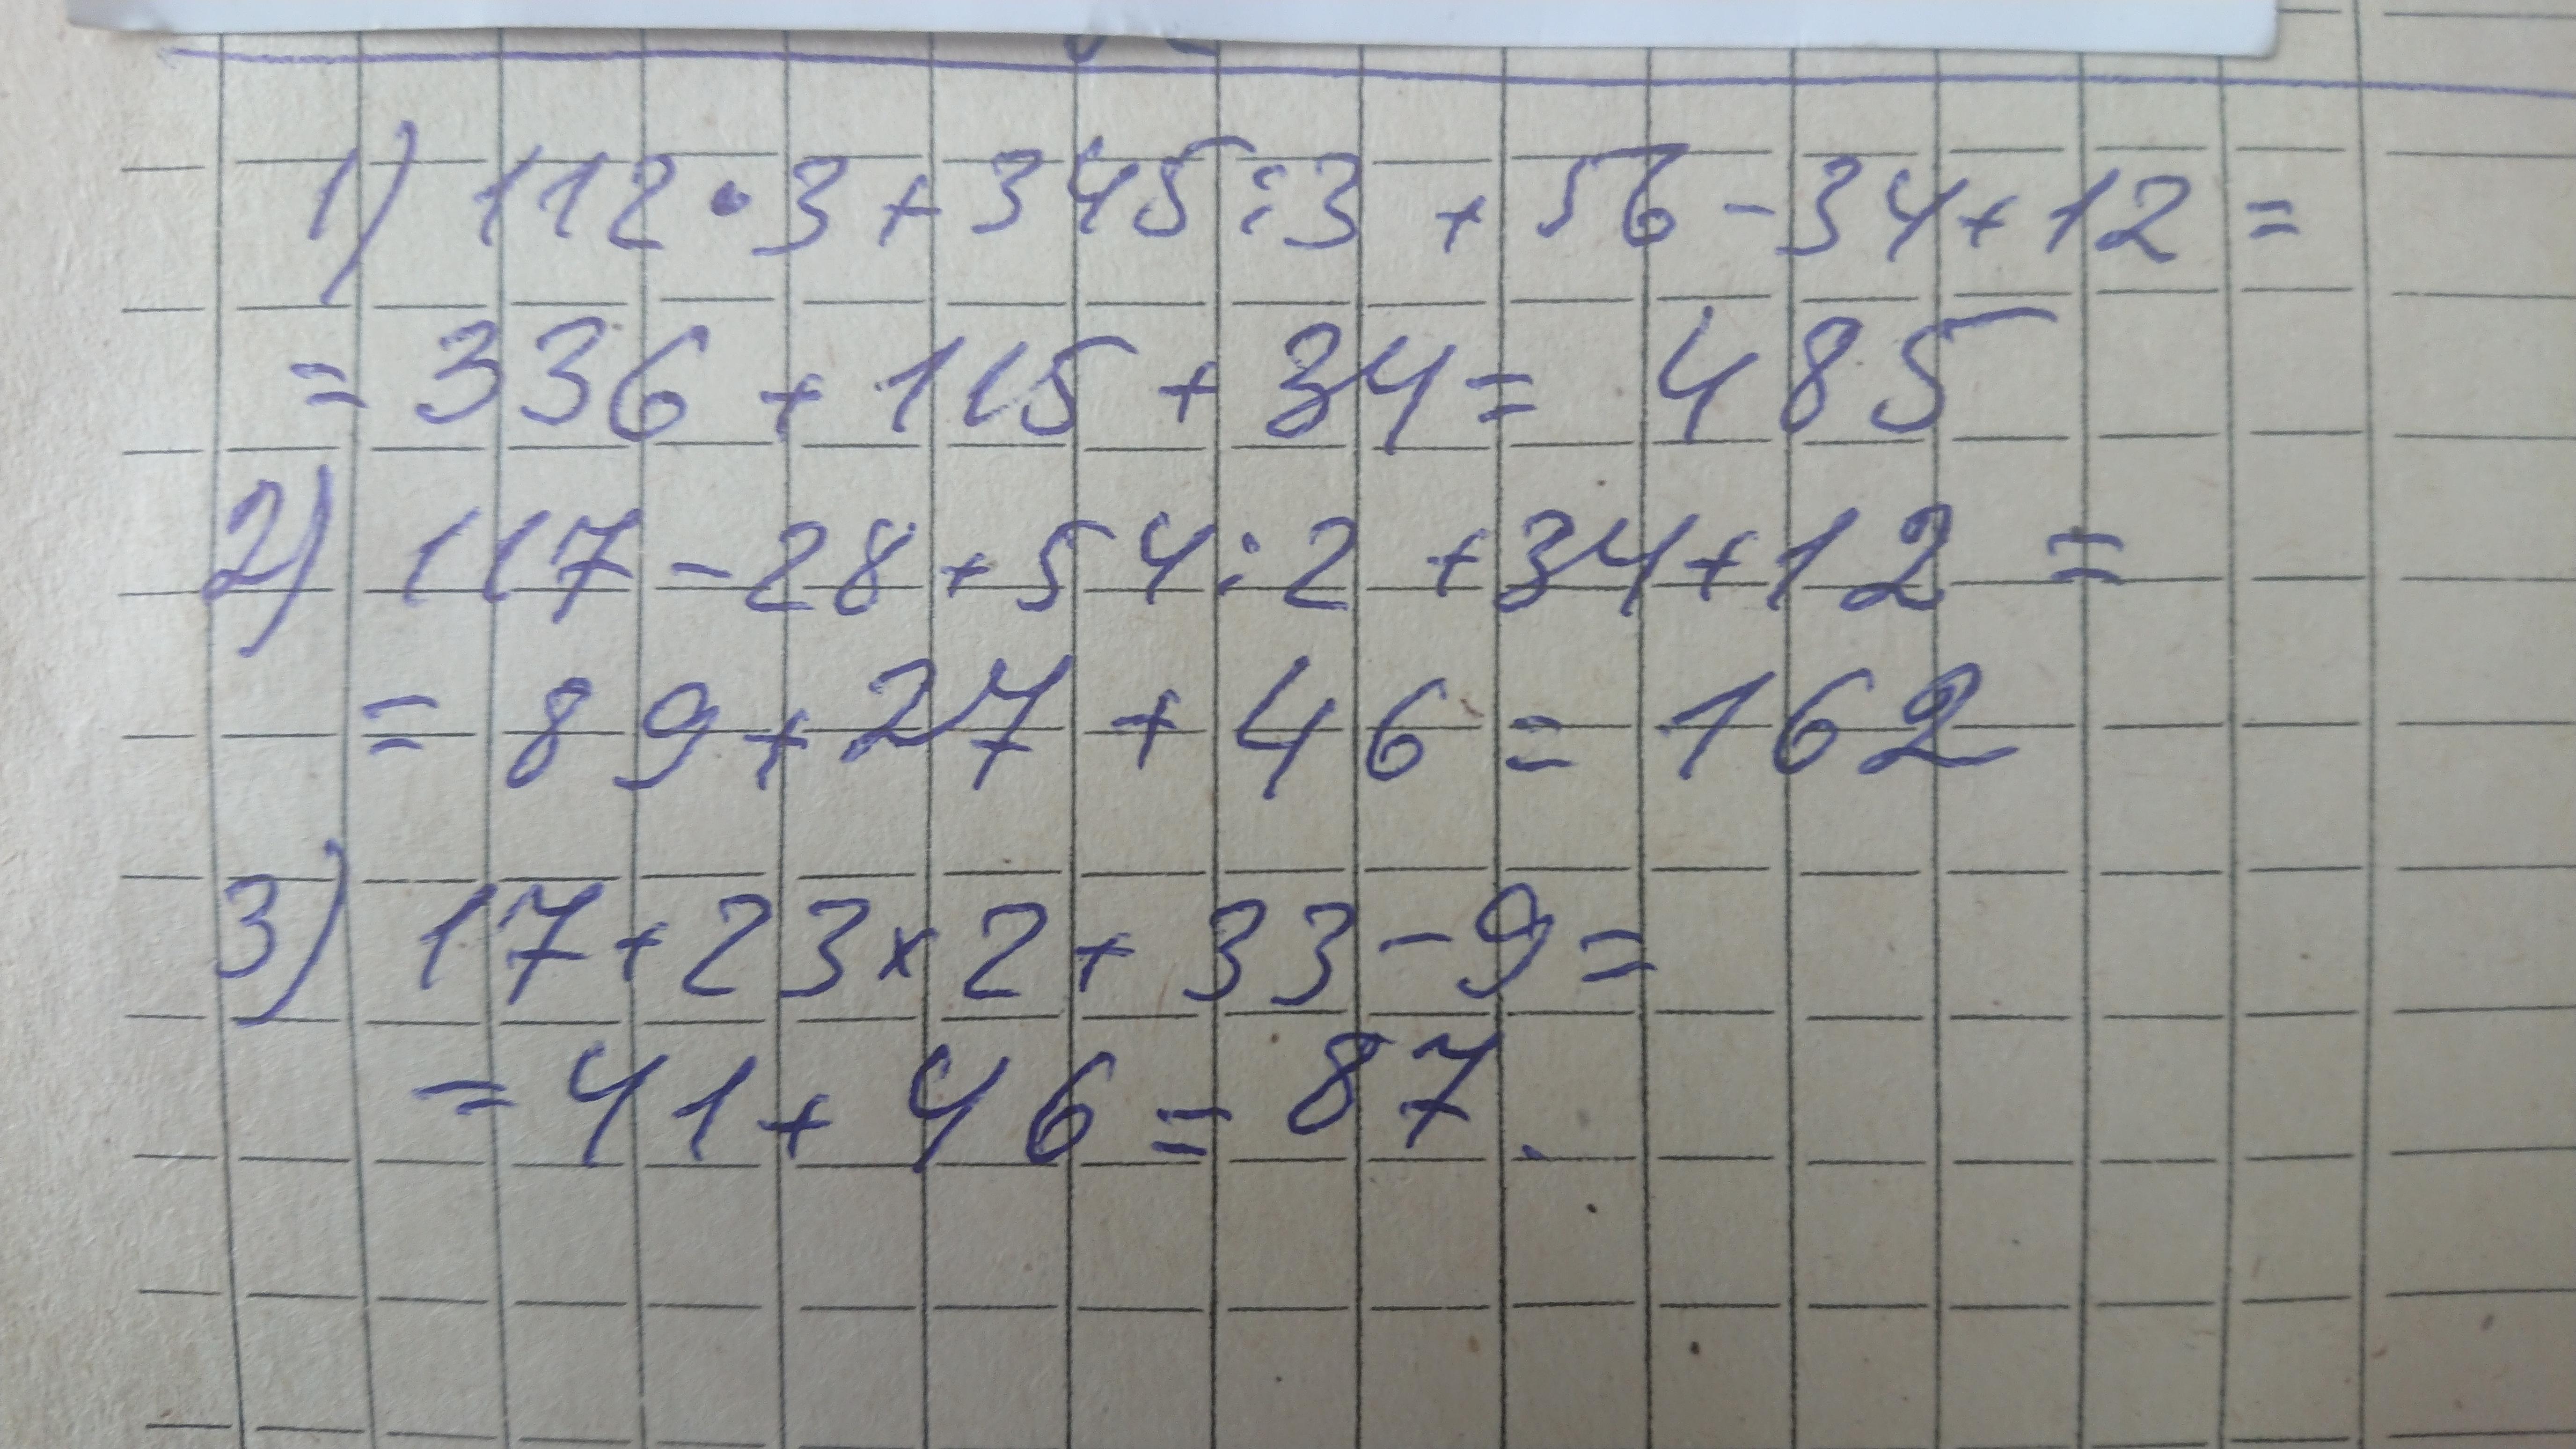 1) 112 • 3 + 345 : 3 + 56 - 34 + 12 =
= 336 + 115 + 34 = 485
2) 117 - 28 + 54 : 2 + 34 + 12 =
= 89 + 27 + 46 = 162
3) 17 + 23 x 2 + 33 - 9 =
= 41 + 46 = 87.